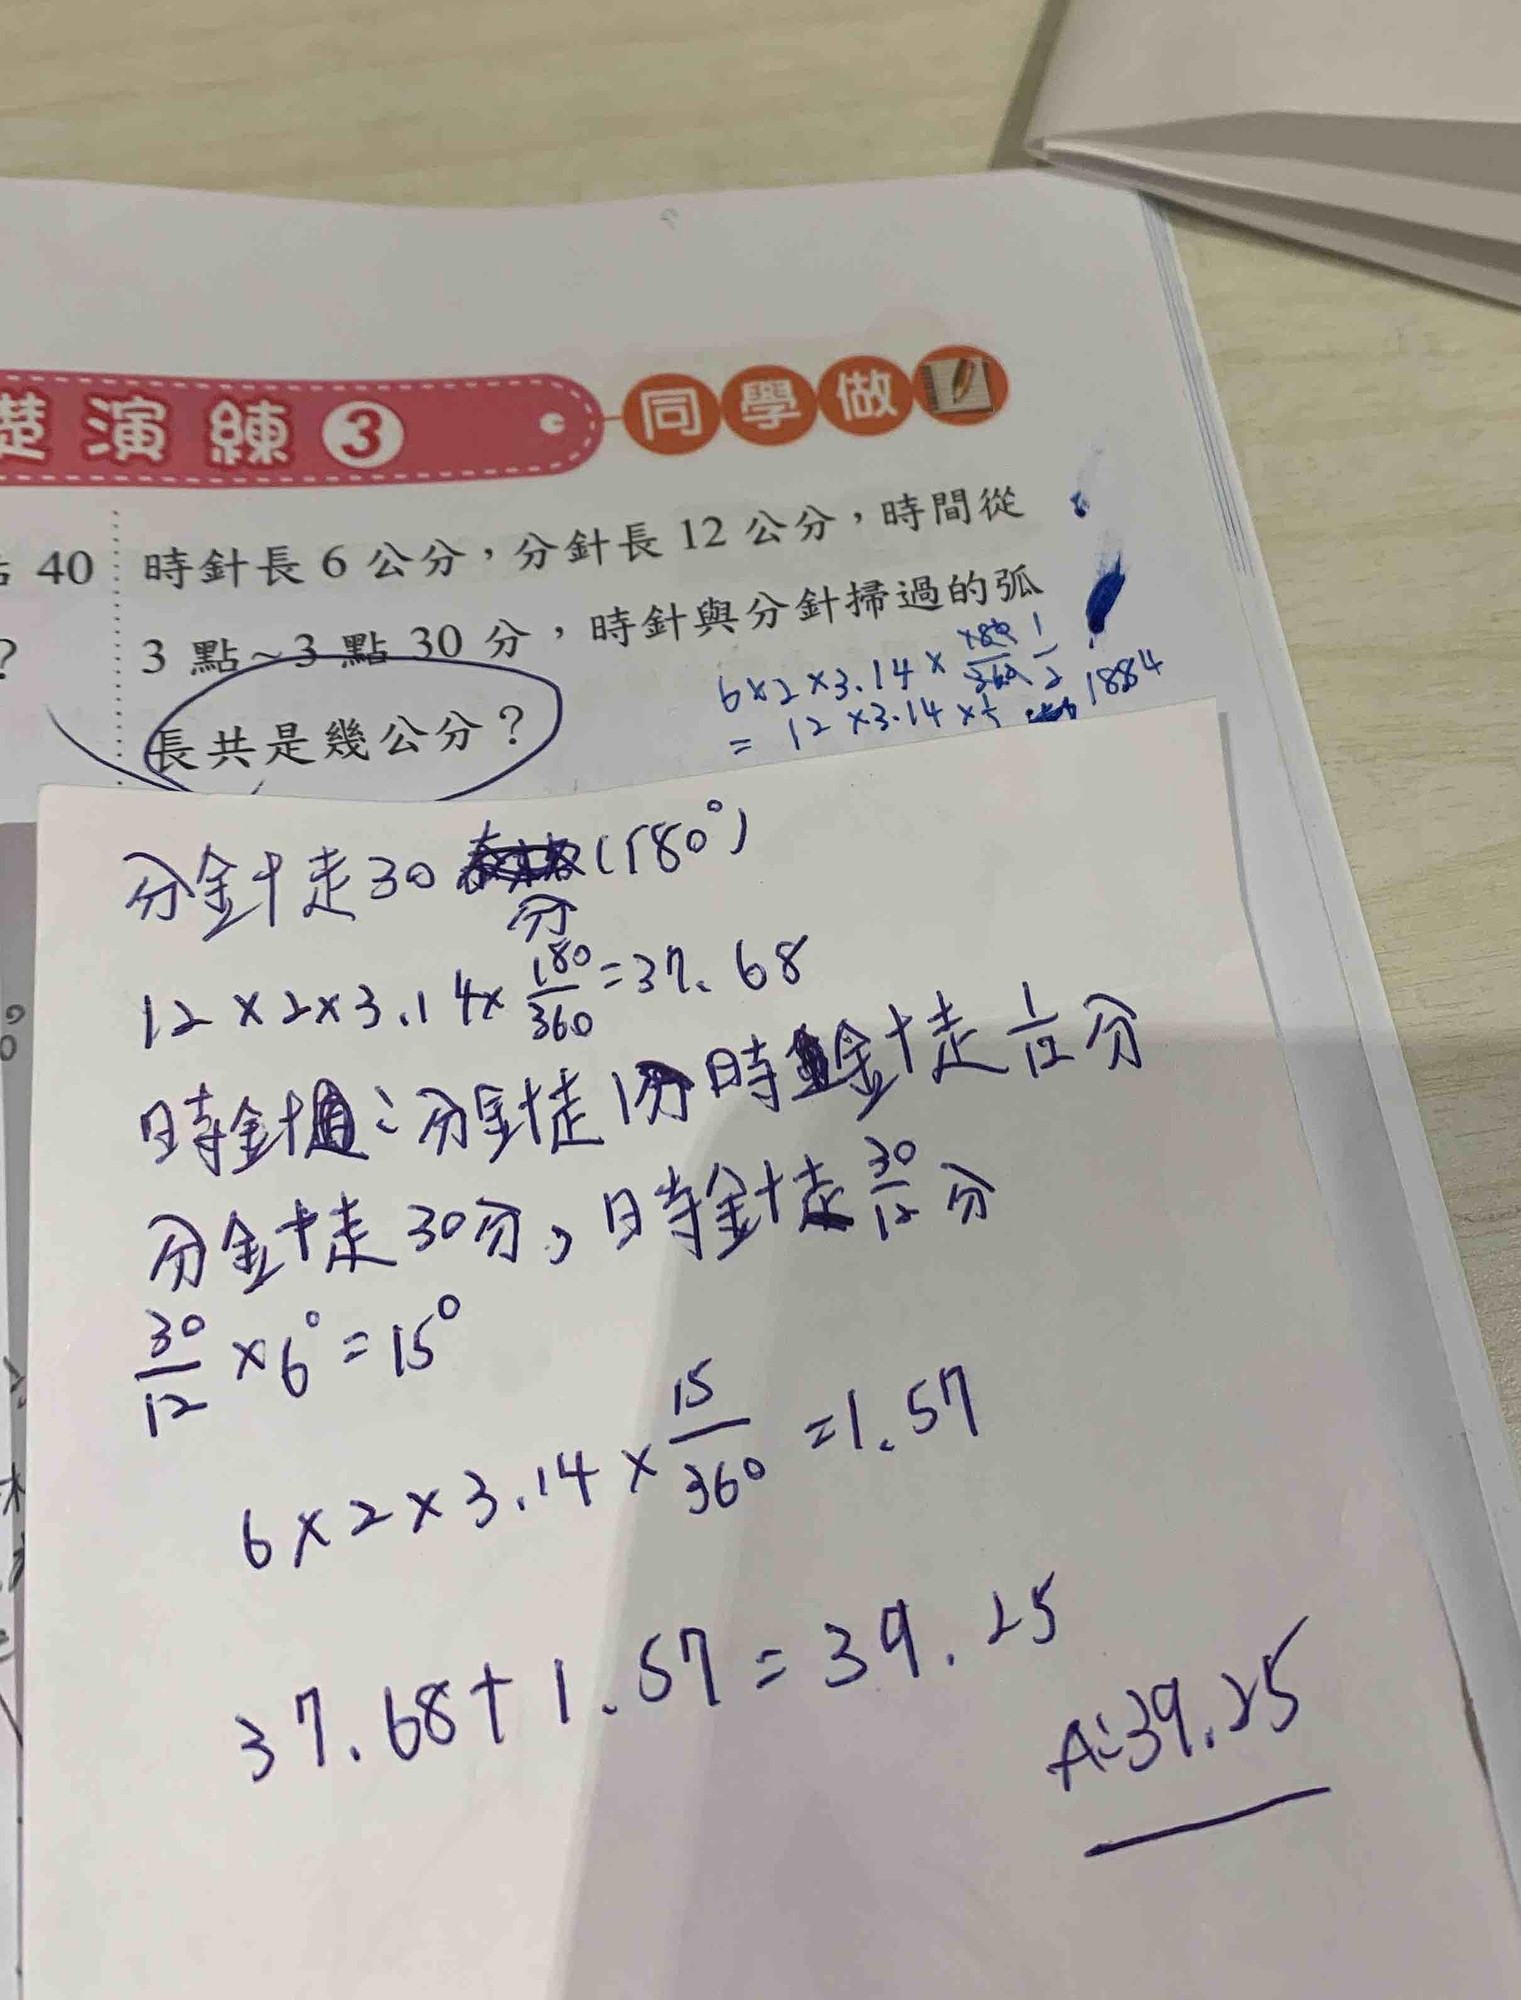 礎演練3 同學做
40
?
時針長 6 公分，分針長 12 公分，時間從
3 點~3 點 30 分，時針與分針掃過的弧
長共是幾公分？
6×2×3.14×180/360 1/2
= 12×3.14×1/2 1884
分針走30 (180°)
分
12×2×3.14×180/360=37.68
時針：分針走1分時針走1/12分
分針走30分，時針走30/12分
30/12×6°=15°
6×2×3.14×15/360=1.57
37.68+1.57=39.25
A:39.25